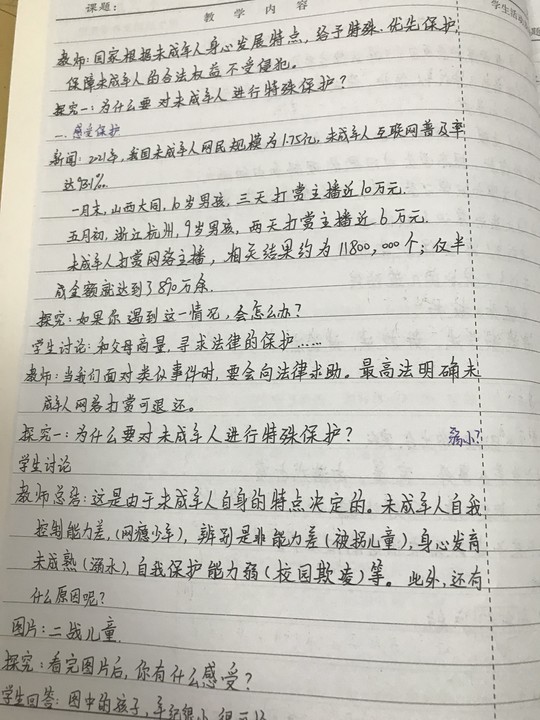 课题：
教 学 内 容
学生活动
教师：国家根据未成年人身心发展特点，给予特殊、优先保护，
保障未成年人的合法权益不受侵犯。
探究一：为什么要对未成年人进行特殊保护？
一、感受保护
新闻：2021年，我国未成年人网民规模为1.75亿，未成年人互联网普及率
达
一月末，山西大同，16岁男孩，三天打赏主播近10万元.
五月初，浙江杭州，9岁男孩，两天打赏主播近6万元.
未成年人打赏网络主播，相关结果约为11800,000个；仅半
成金额就达到了890万余.
探究：如果你遇到这一情况，会怎么办？
学生讨论：和父母商量，寻求法律的保护……
教师：当我们面对类似事件时，要会向法律求助。最高法明确未
成年人网络打赏可退还。
探究一：为什么要对未成年人进行特殊保护？
学生讨论
教师总结：这是由于未成年人自身的特点决定的。未成年人自我
控制能力差，(网瘾少年)，辨别是非能力差(被拐儿童)，身心发育
未成熟(溺水)，自我保护能力弱(校园欺凌)等。此外，还有
什么原因呢？
图片：二战儿童.
探究：看完图片后，你有什么感受？
学生回答：图中的孩子，年纪很小，很可怜